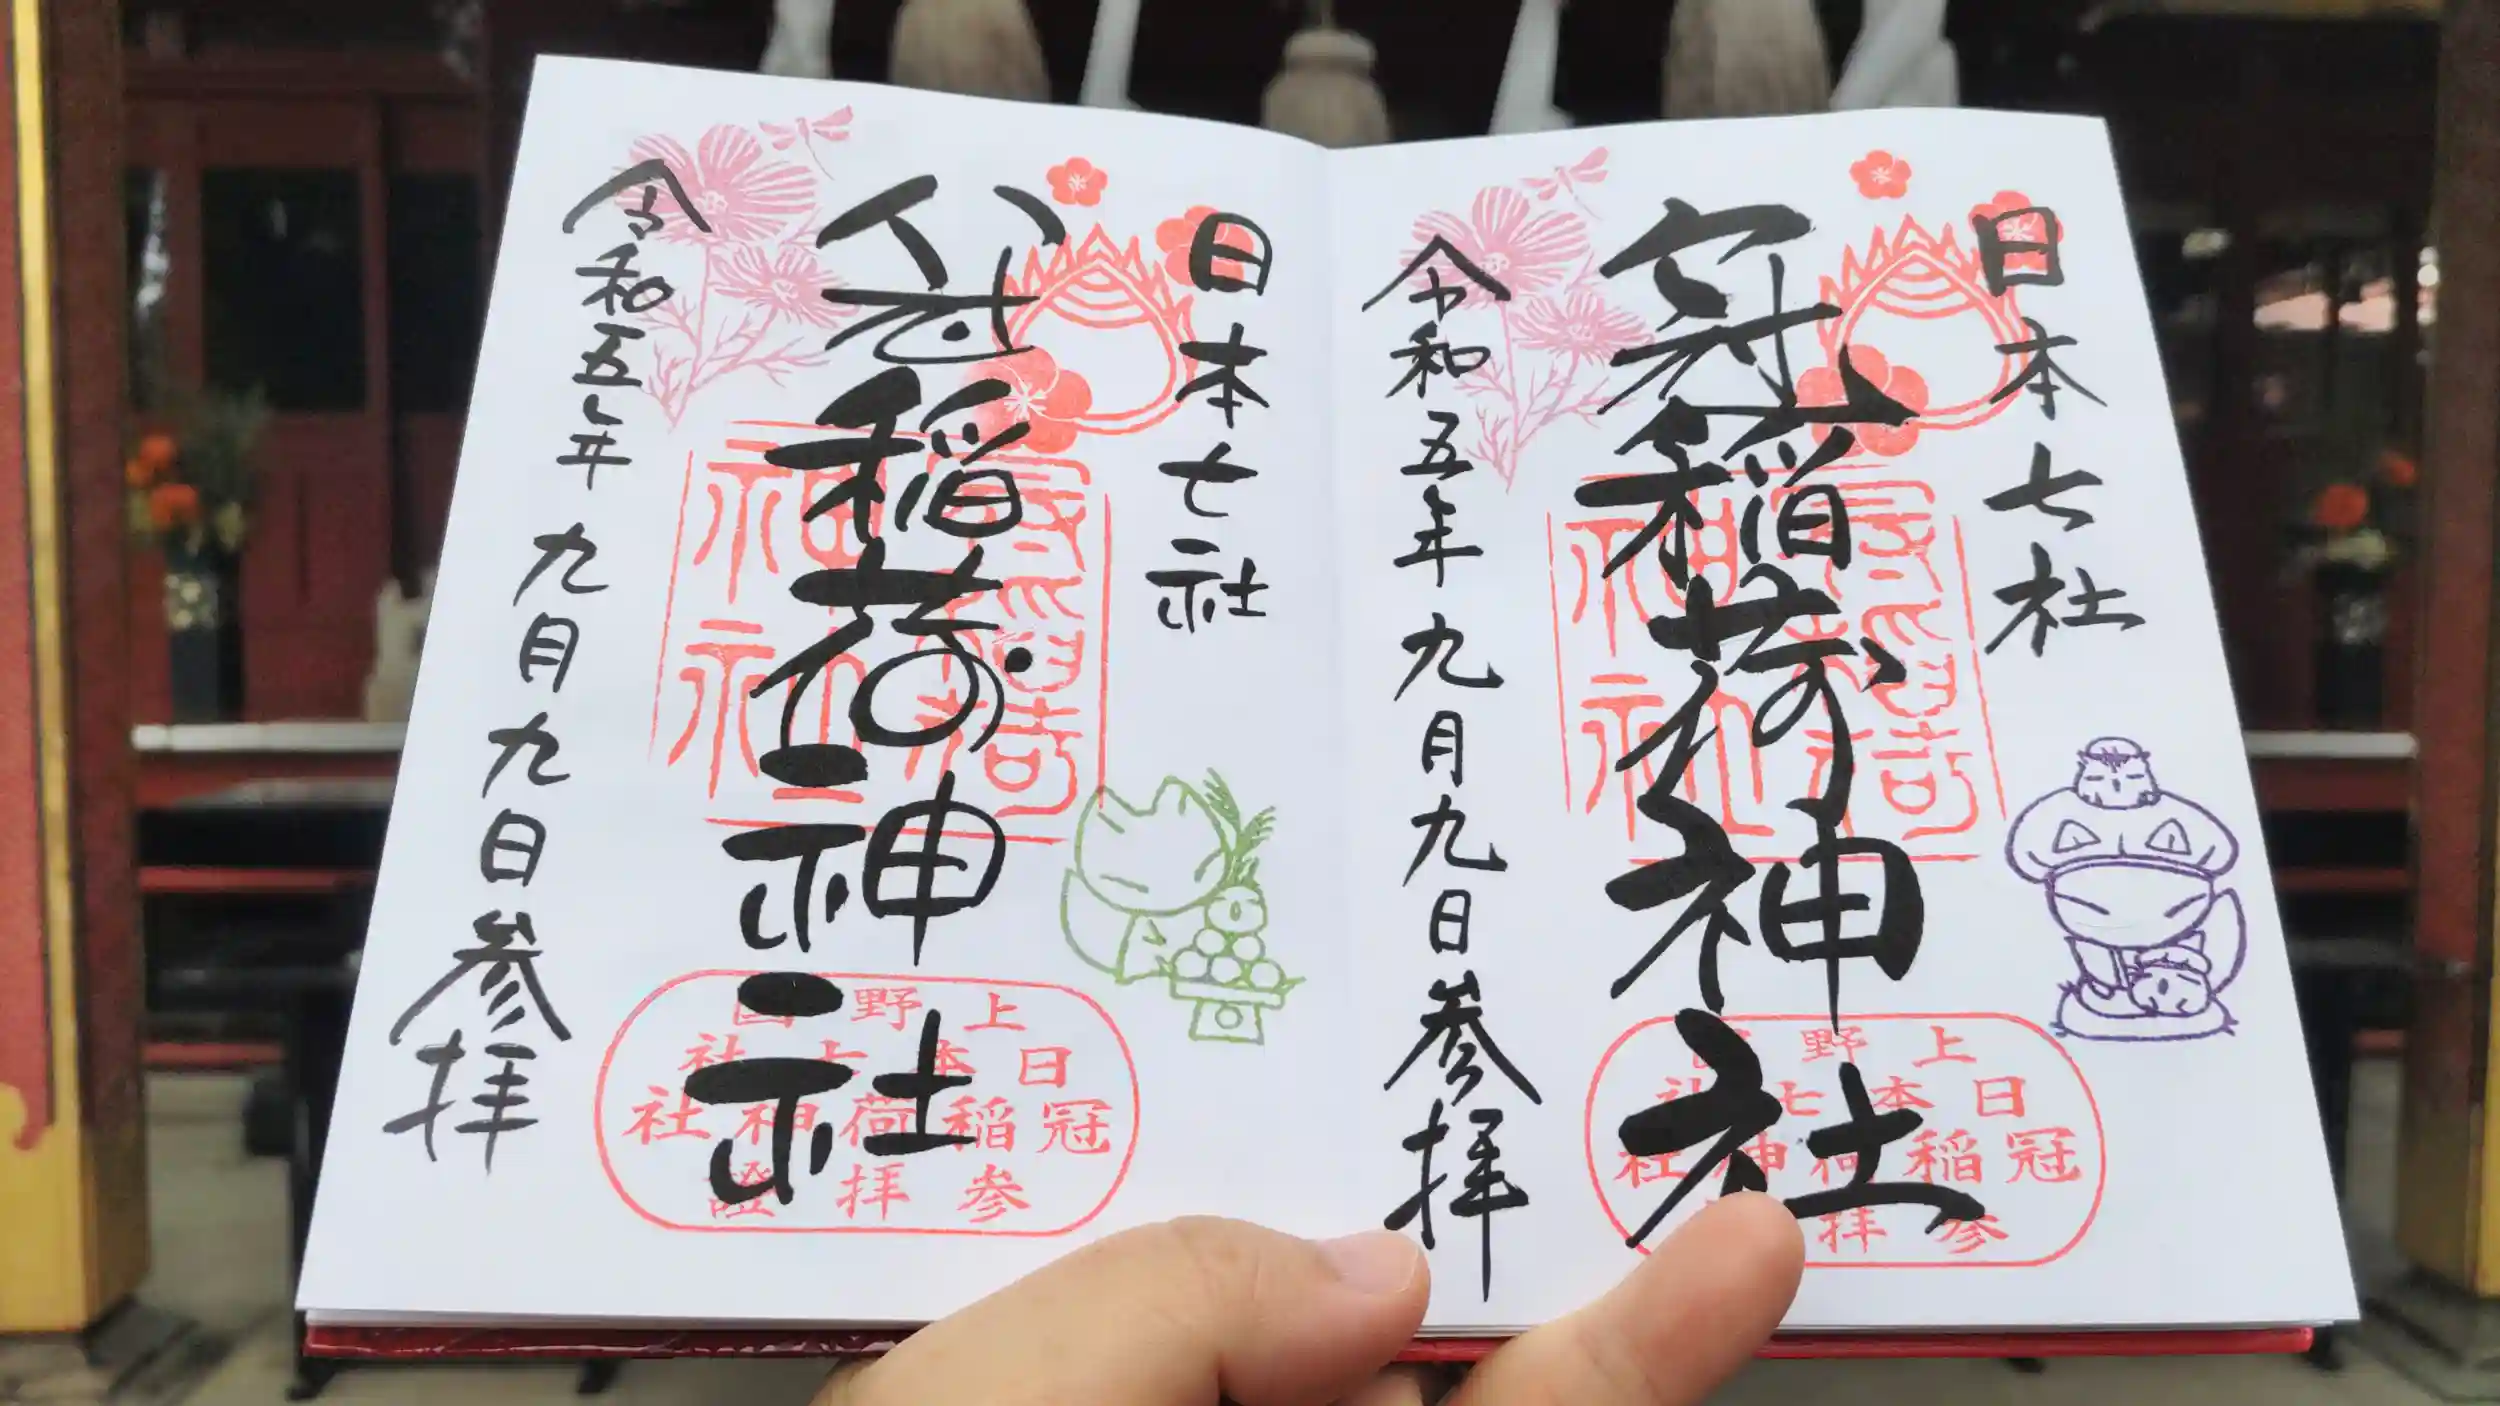 日本七社
冠稲荷神社
令和五年九月九日参拝
冠稲荷神社
上野
日本七社
冠稲荷神社
参拝
日本七社
冠稲荷神社
令和五年九月九日参拝
冠稲荷神社
上野国
日本七社
冠稲荷神社
参拝證